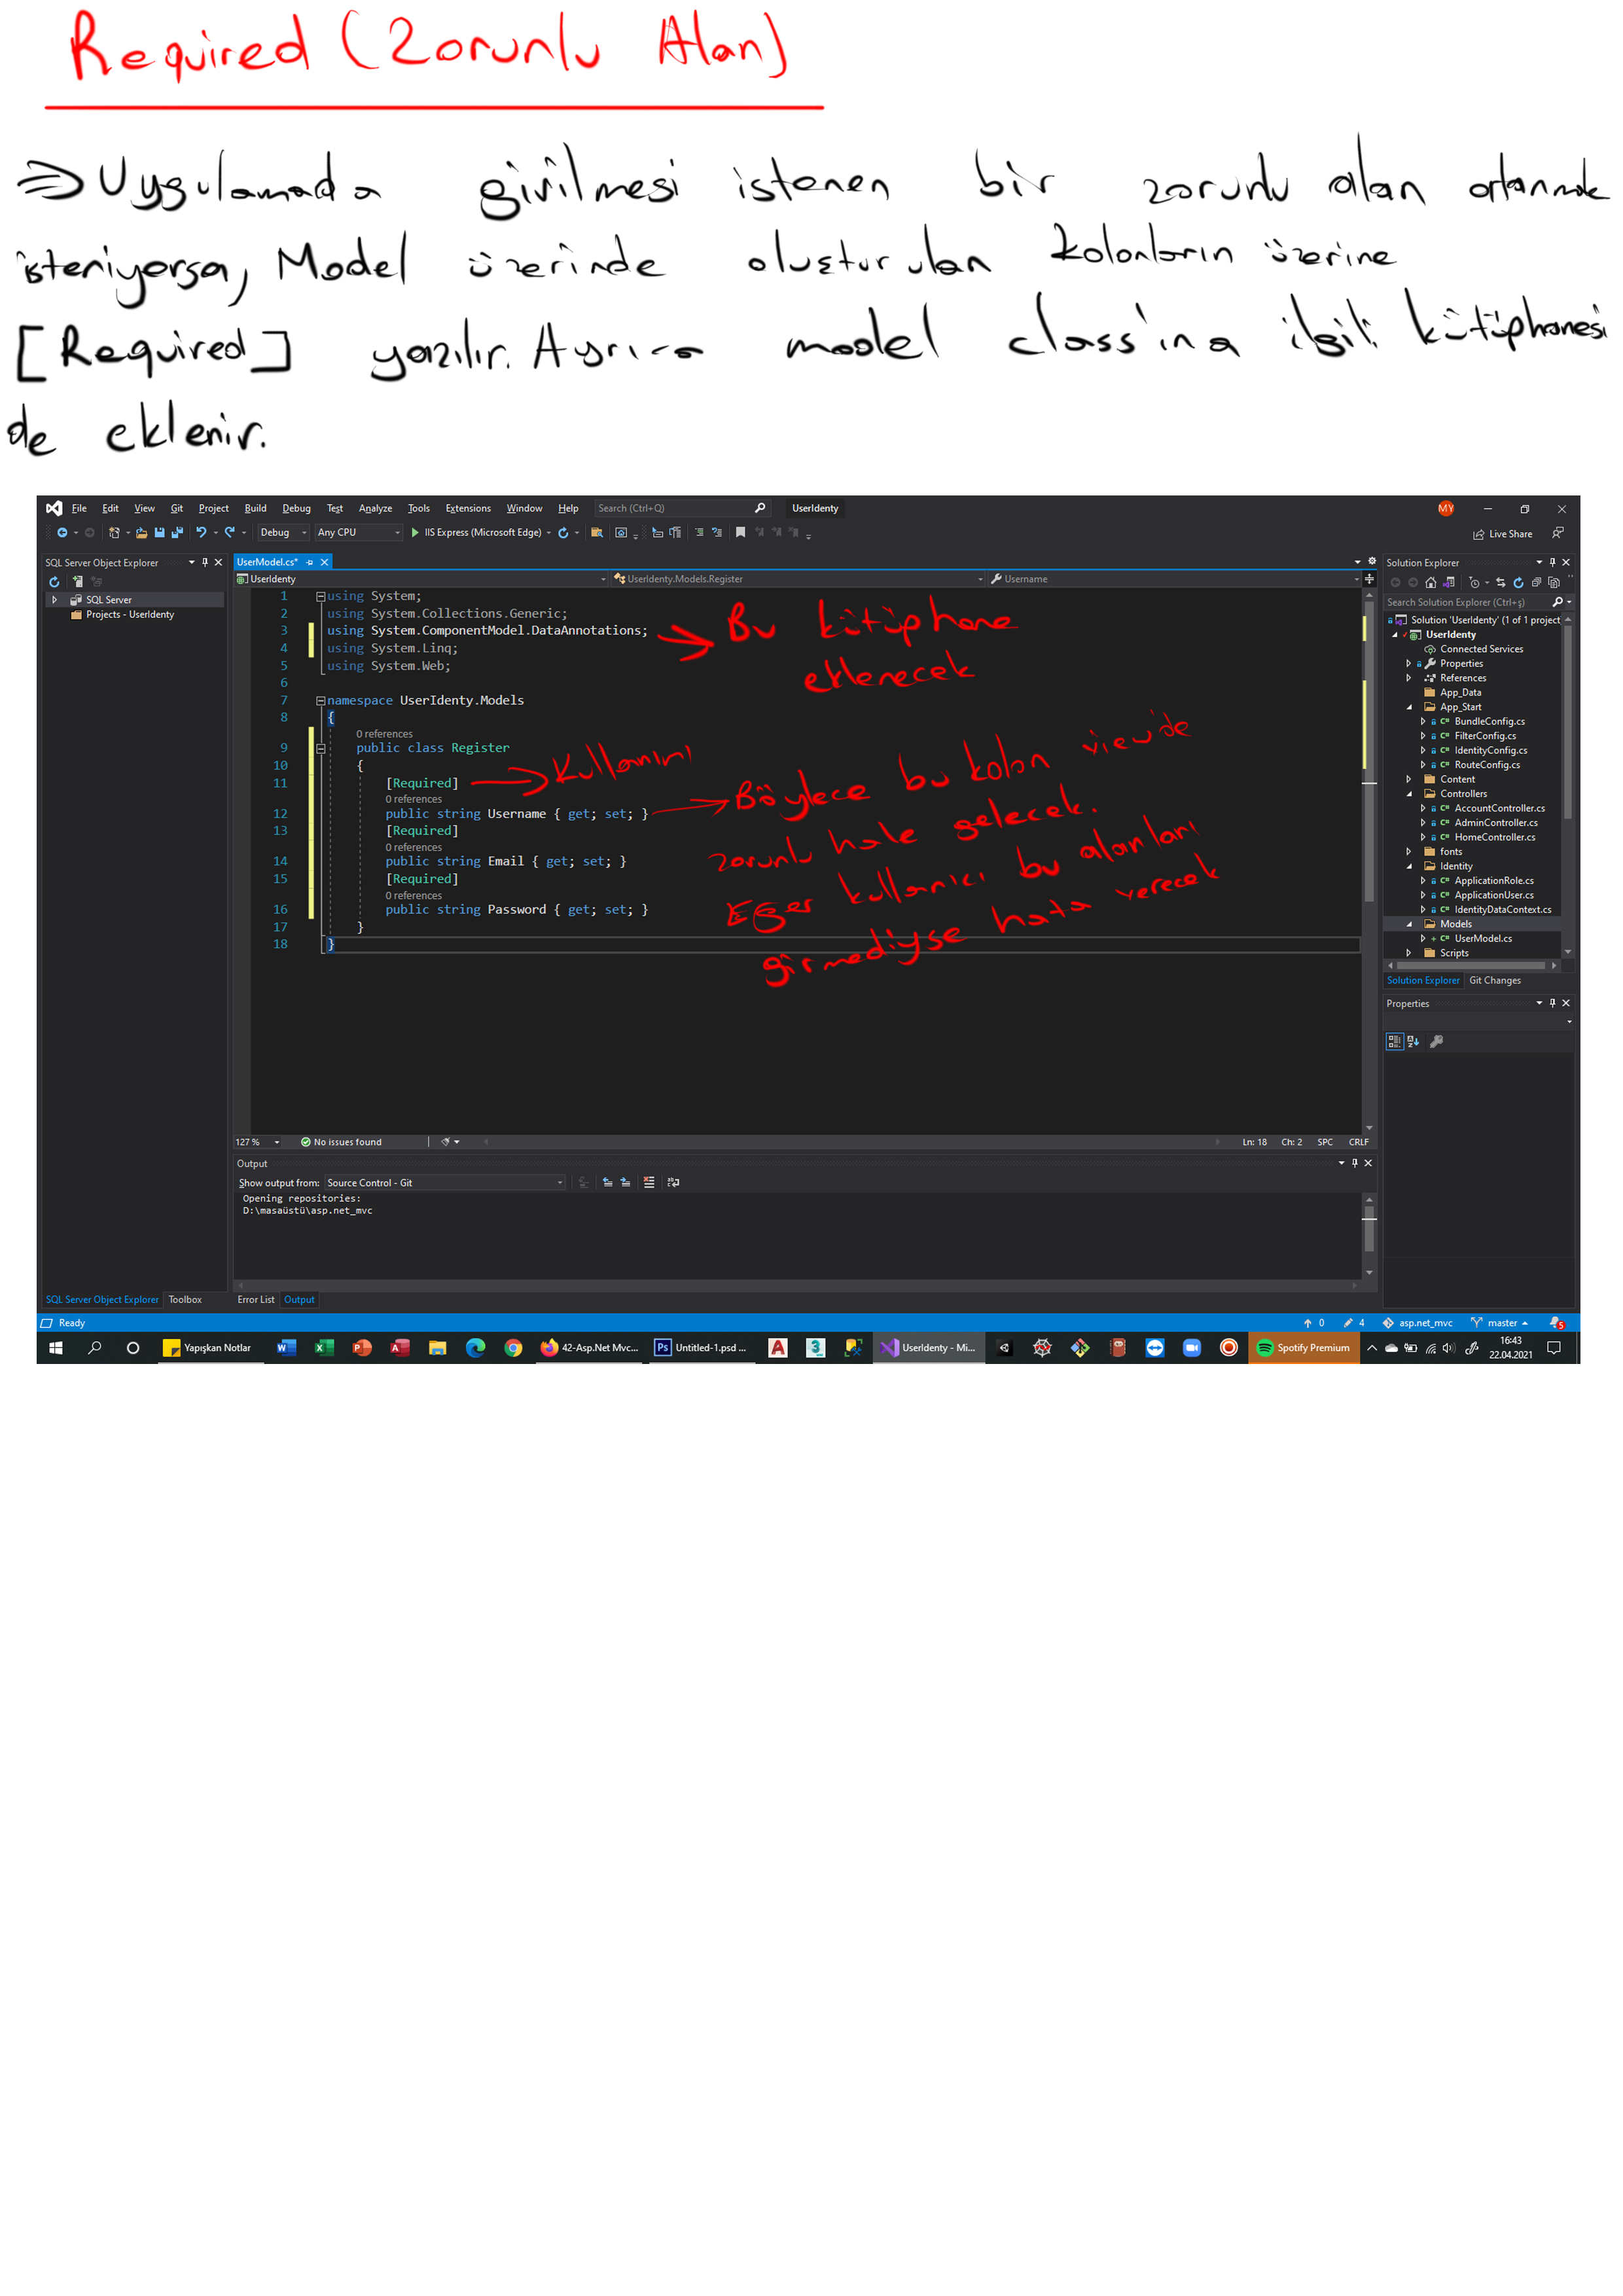 Required (Zorunlu Alan)
⇒ Uygulamada girilmesi istenen bir zorunlu alan
isteniyorsa, Model üzerinde oluşturulan kolonların üzerine
[Required] yazılır. Ayrıca model class'ına ilgili kütüphanesi
de eklenir.
File Edit View Git Project Build Debug Test Analyze Tools Extensions Window Help Search (Ctrl+Q) UserIdenty MY
Debug Any CPU IIS Express (Microsoft Edge) Live Share
SQL Server Object Explorer
SQL Server
Projects - UserIdenty
UserModel.cs*
UserIdenty UserIdenty.Models.Register Username
1 using System;
2 using System.Collections.Generic;
3 using System.ComponentModel.DataAnnotations;
4 using System.Linq;
5 using System.Web;
6
7 namespace UserIdenty.Models
8 {
0 references
9 public class Register
10 {
11 [Required]
0 references
12 public string Username { get; set; }
13 [Required]
0 references
14 public string Email { get; set; }
15 [Required]
0 references
16 public string Password { get; set; }
17 }
18 }
→ Bu kütüphane
eklenecek
→ Kullanımı
→ Böylece bu kolon view'de
zorunlu hale gelecek.
Eğer kullanıcı bu alanları
girmediyse hata verecek
127 % No issues found Ln: 18 Ch: 2 SPC CRLF
Output
Show output from: Source Control - Git
Opening repositories:
D:\masaüstü\asp.net_mvc
SQL Server Object Explorer Toolbox Error List Output
Solution Explorer
Search Solution Explorer (Ctrl+ş)
Solution 'UserIdenty' (1 of 1 project
UserIdenty
Connected Services
Properties
References
App_Data
App_Start
BundleConfig.cs
FilterConfig.cs
IdentityConfig.cs
RouteConfig.cs
Content
Controllers
AccountController.cs
AdminController.cs
HomeController.cs
fonts
Identity
ApplicationRole.cs
ApplicationUser.cs
IdentityDataContext.cs
Models
UserModel.cs
Scripts
Solution Explorer Git Changes
Properties
Ready 0 4 asp.net_mvc master 5
Yapışkan Notlar 42-Asp.Net Mvc... Ps Untitled-1.psd ... UserIdenty - Mi... Spotify Premium 16:43
22.04.2021